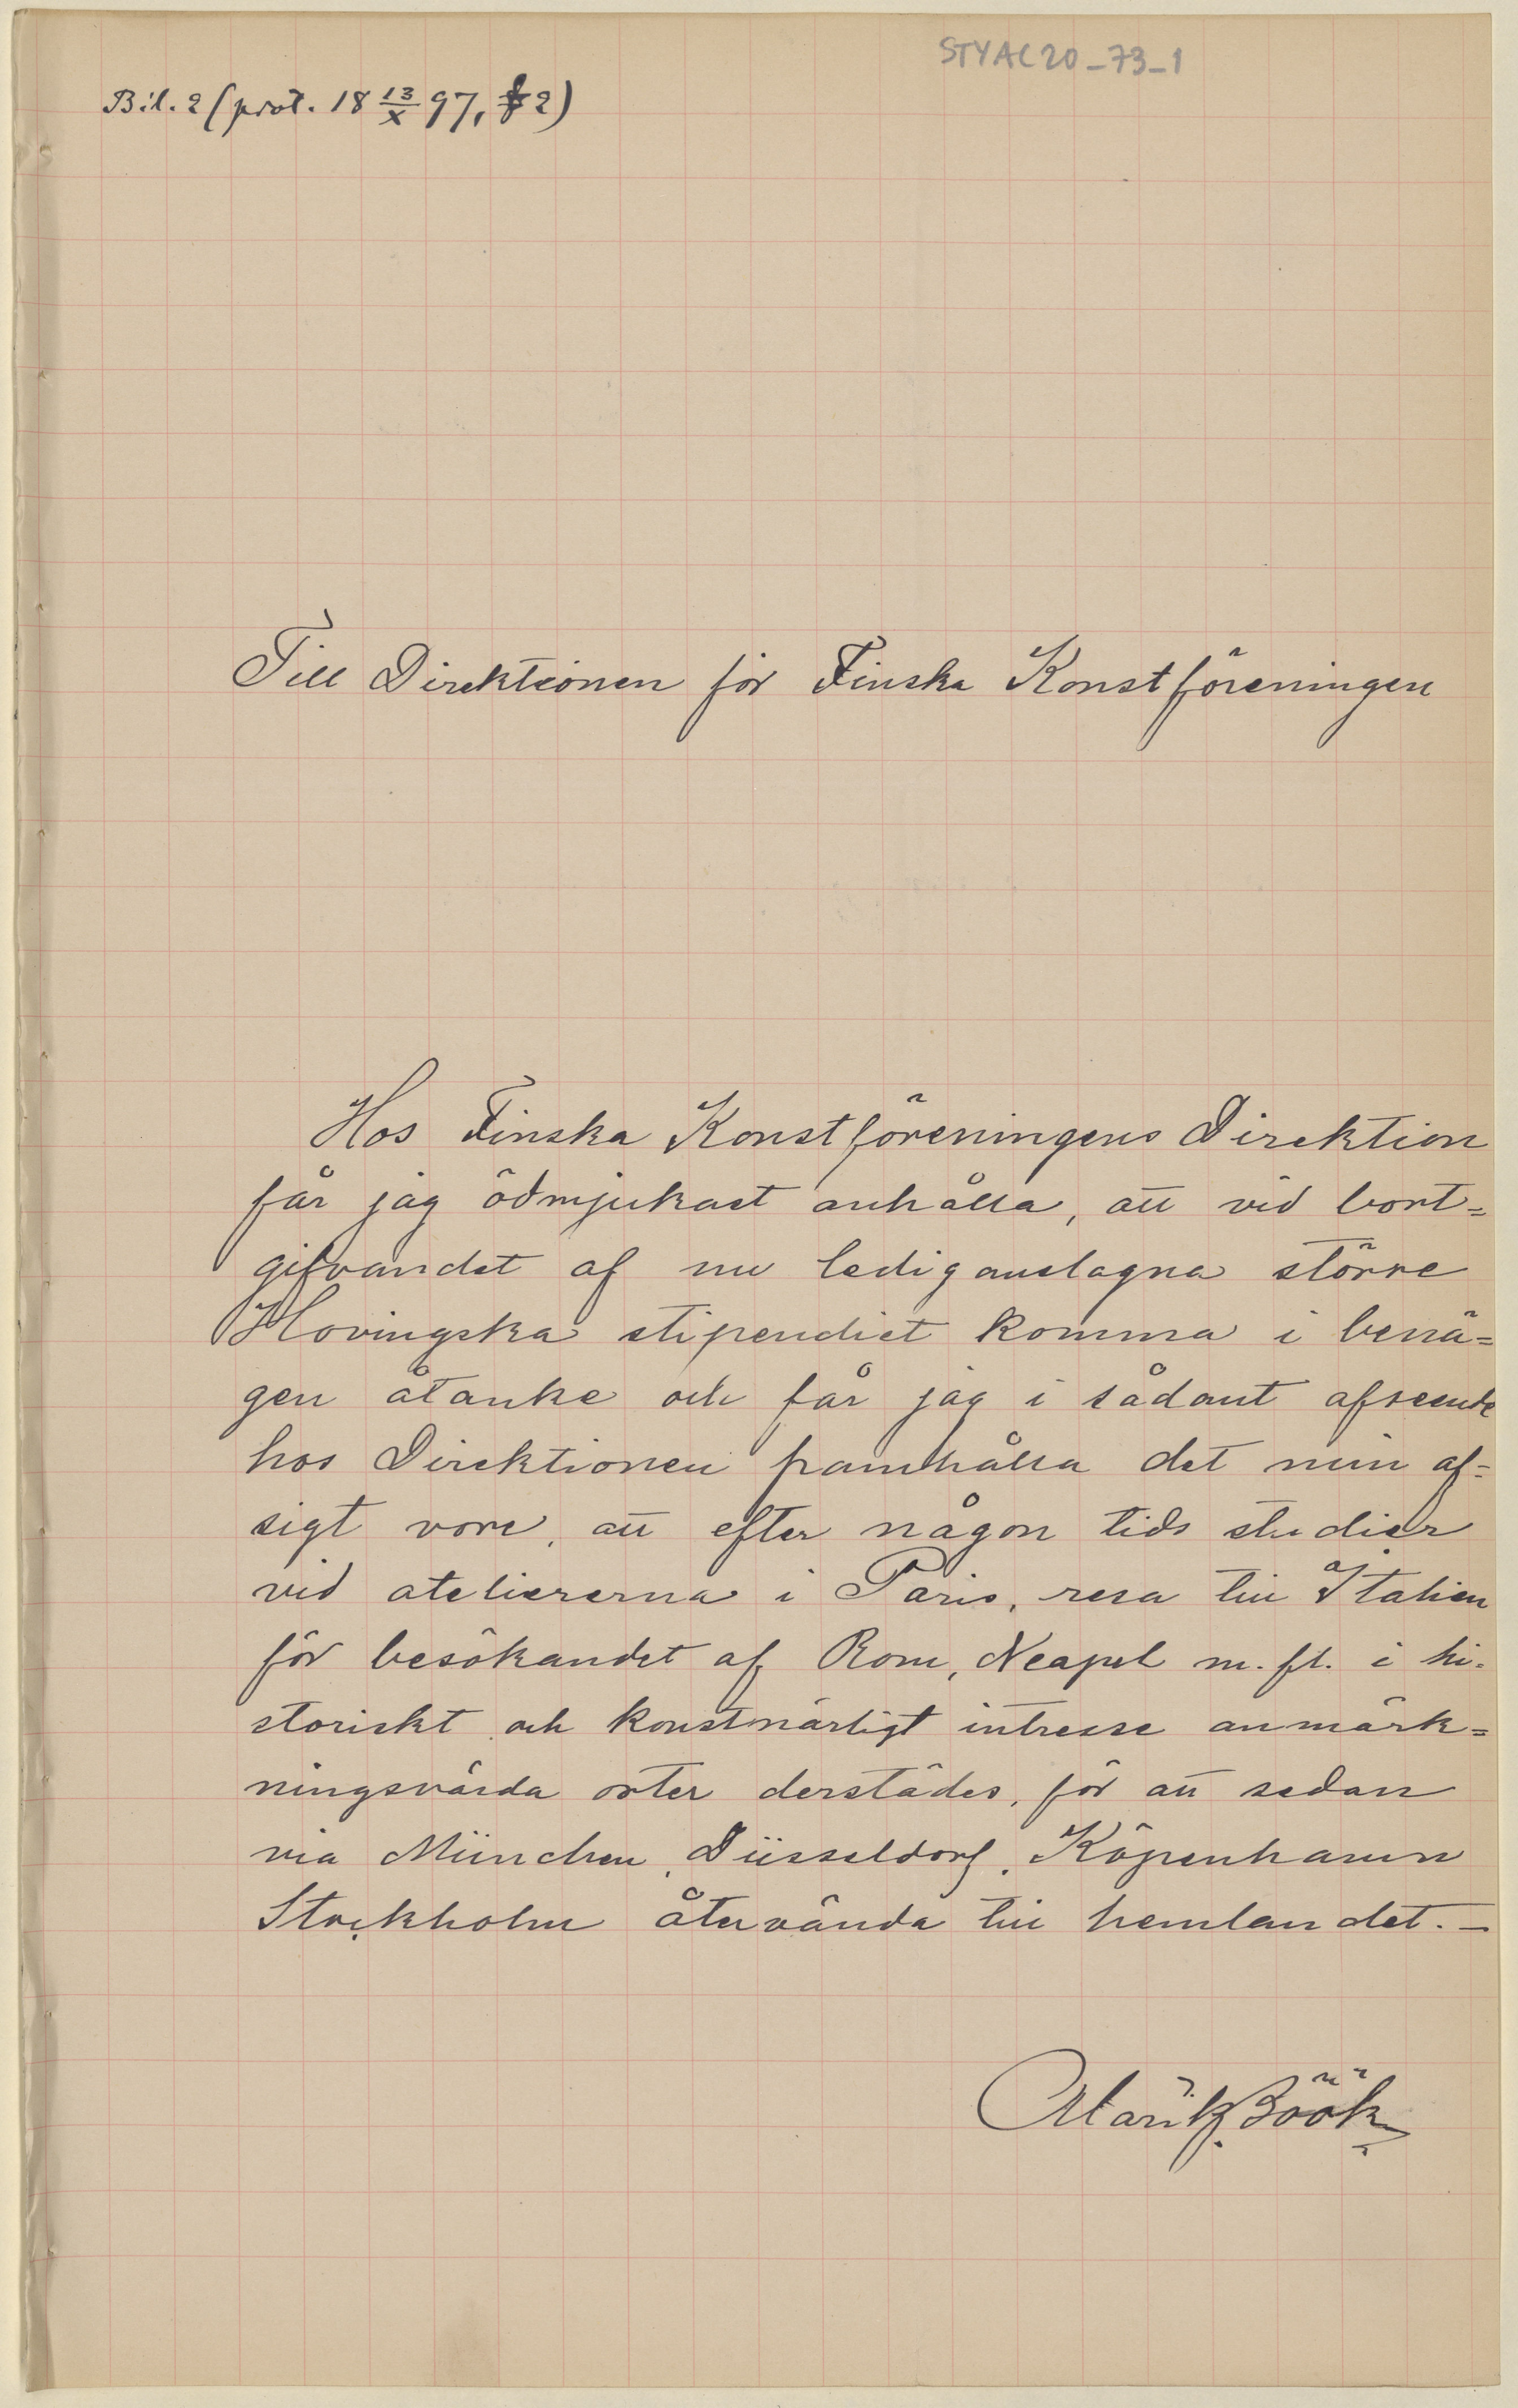 STYAC20_73_1
Bil. 2 (prot. 18 13/X 97, § 2)
Till Direktionen för Finska Konstföreningen
Hos Finska Konstföreningens Direktion
får jag ödmjukast anhålla, att vid bort=
gifvandet af nu lediganslagna större
Hovingska stipendiet komma i benä=
gen åtanke och får jag i sådant afseende
hos Direktionen framhålla det min af=
sigt vore, att efter någon tids studier
vid ateliererna i Paris, resa till Italien
för besökandet af Rom, Neapel m. fl. i hi=
storiskt och konstnärligt intresse anmärk=
ningsvärda orter derstädes, för att sedan
via München, Düsseldorf, Köpenhamn
Stockholm återvända till hemlandet. —
Alarik Böök